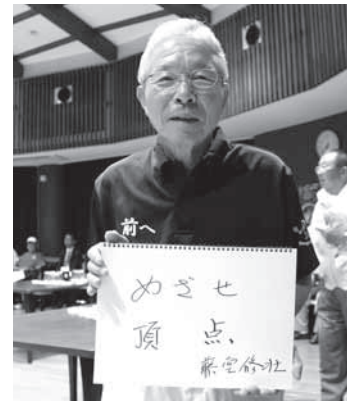 前へ
めざせ
頂点